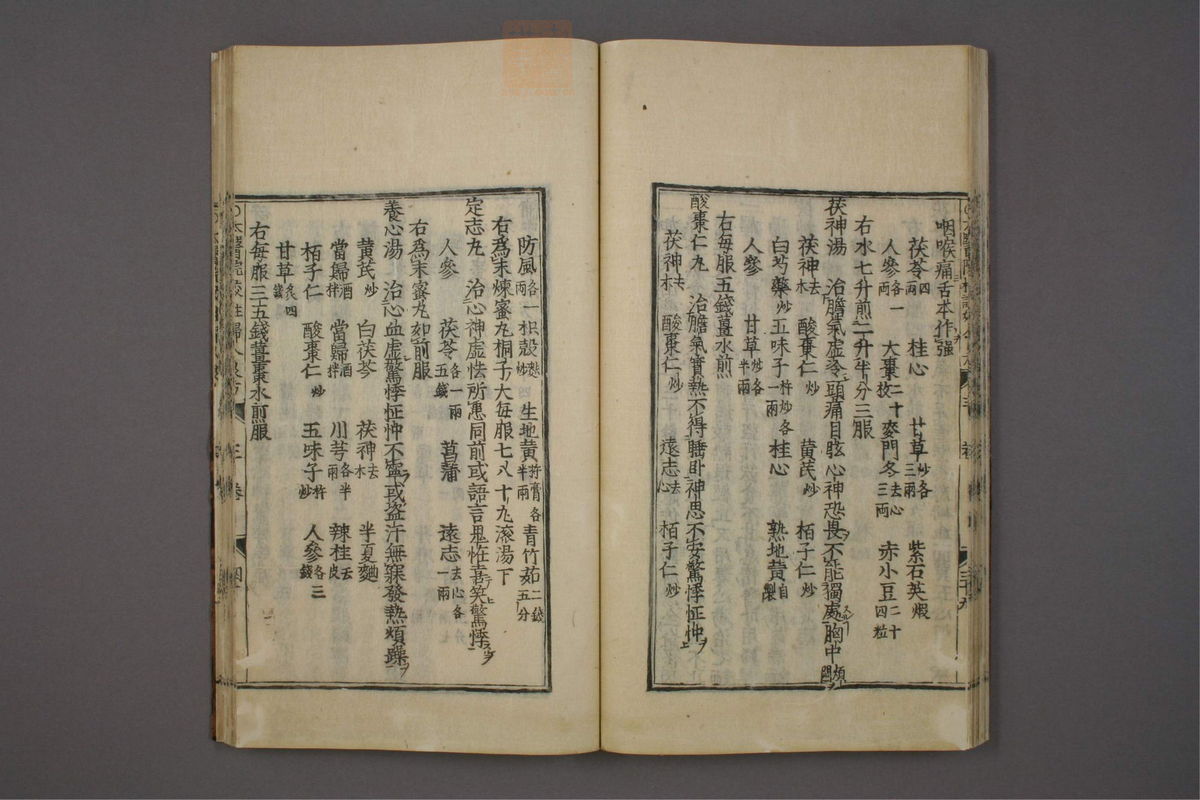 咽喉痛舌本作強
茯苓四兩 桂心 甘草炒各三兩 紫石英煆
人參各一兩 大棗二十枚 麥門冬去心三兩 赤小豆二十四粒
右水七升煎二升半分三服
茯神湯 治膽氣虛冷頭痛目眩心神恐畏不能獨處胸中煩悶
茯神去木 酸棗仁炒 黃芪炒 栢子仁炒
白芍藥炒 五味子杵炒各一兩 桂心 熟地黃自製
人參 甘草炒各半兩
右每服五錢薑水煎
酸棗仁丸 治膽氣實熱不得睡臥神思不安驚悸怔忡
茯神去木 酸棗仁炒 遠志去心 栢子仁炒
防風各一兩 枳殼麩炒 生地黃杵膏各半兩 青竹茹二錢五分
右為末煉蜜丸桐子大每服七八十丸滾湯下
定志丸 治心神虛怯所患同前或語言鬼怪喜笑驚悸
人參 茯苓各一兩五錢 菖蒲 遠志去心各一兩
右為末蜜丸如前服
養心湯 治心血虛驚悸怔忡不寧或盜汗無寐發熱煩躁
黃芪炒 白茯苓 茯神去木 半夏麯
當歸酒拌 當歸酒拌 川芎各半兩 辣桂去皮
栢子仁 酸棗仁炒 五味子杵炒 人參各三錢
甘草炙四錢
右每服三五錢薑棗水煎服